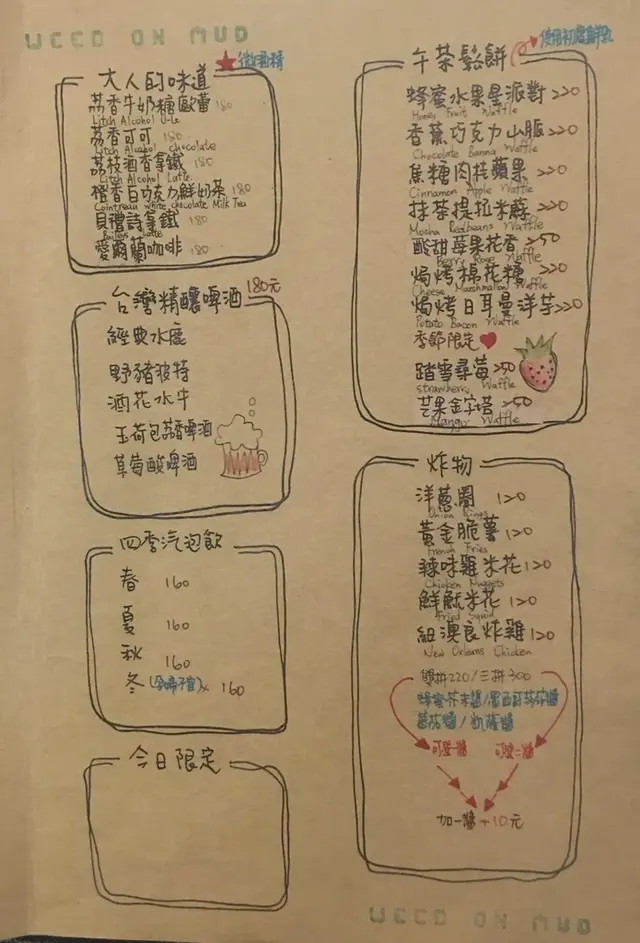 WEED ON MUD
大人的味道
★微酒精
荔香牛奶糖歐蕾 180
Litch Alcohol O-le
荔香可可 180
Litch Alcohol chocolate
荔枝酒香拿鐵 180
Litch Alcohol Latte
橙香白巧克力鮮奶茶 180
Cointreau white chocolate Milk Tea
貝禮詩拿鐵 180
Baileys Latte
愛爾蘭咖啡 180
台灣精釀啤酒 180元
經典水鹿
野豬波特
酒花水牛
玉荷包荔香啤酒
草莓酸啤酒
四季汽泡飲
春 160
夏 160
秋 160
冬 (孕婦不宜)x 160
今日限定
午茶鬆餅
蜂蜜水果星派對 220
Honey Fruit Waffle
香蕉巧克力山脈 220
Chocolate Banna Waffle
焦糖肉桂蘋果 220
Cinnamon Apple Waffle
抹茶提拉米蘇 220
Mocha Redbeans Waffle
酸甜莓果花香 250
Berry Rose Waffle
焗烤棉花糖 220
Cheese Marshmallow Waffle
焗烤日耳曼洋芋 220
Potato Bacon Waffle
季節限定
踏雪尋莓 250
strawberry Waffle
芒果金字塔 250
Mango Waffle
炸物
洋蔥圈 120
Onion Rings
黃金脆薯 120
French Fries
辣味雞米花 120
Chicken Nuggets
鮮魷米花 120
Fried Squid
紐澳良炸雞 120
New Orleans Chicken
雙拼220/三拼300
蜂蜜芥末醬/墨西哥莎莎醬
蕃茄醬/凱薩醬
可選一醬 可選二醬
加一醬+10元
WEED ON MUD